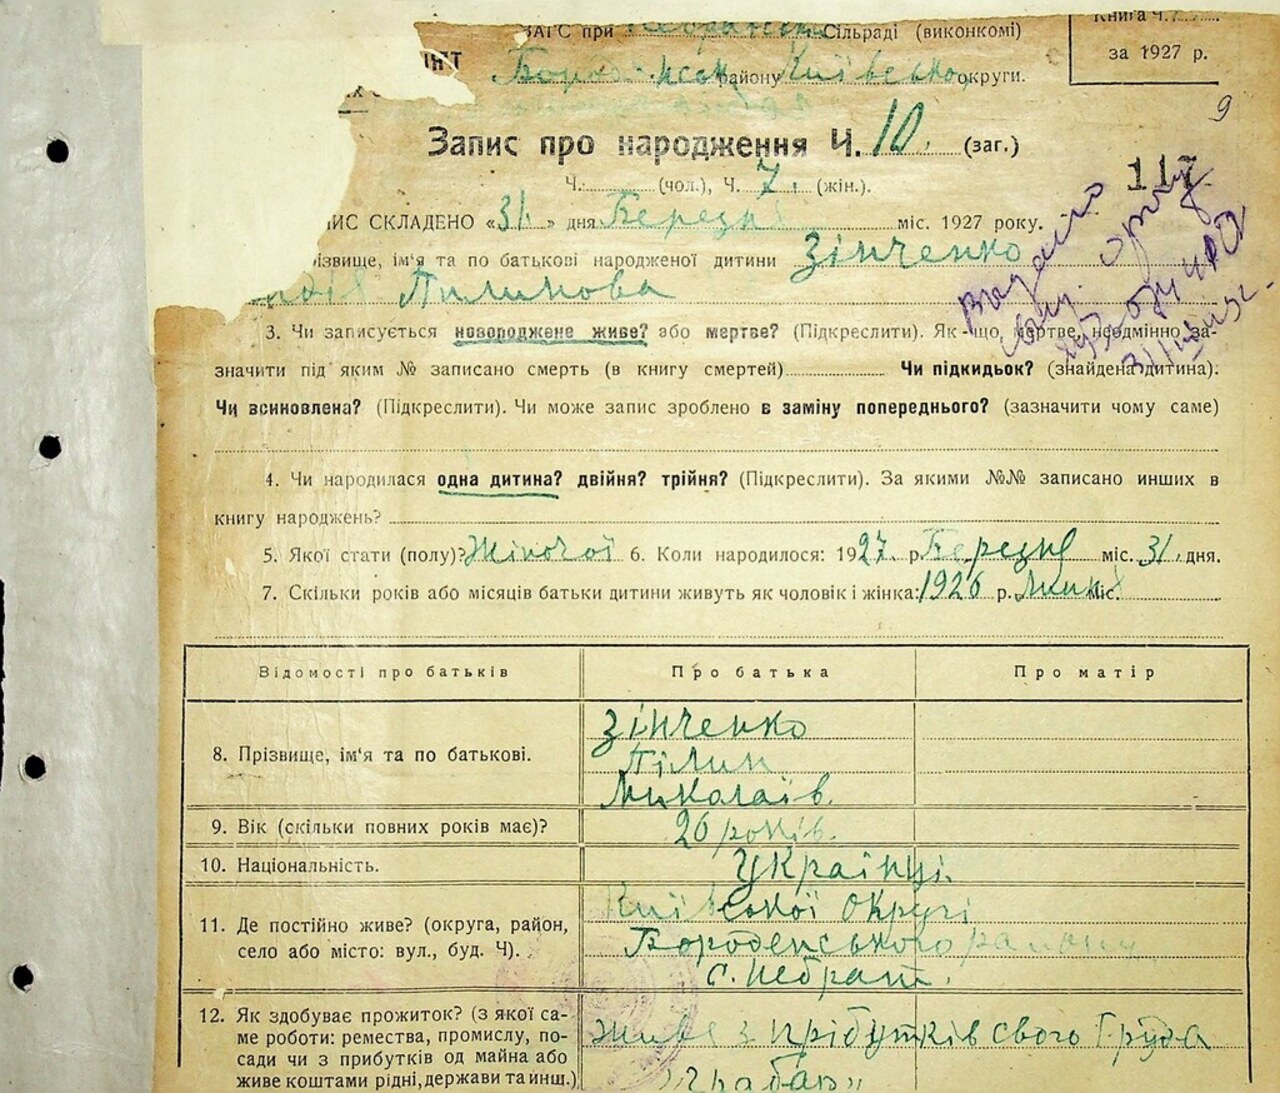 Книга Ч.
ЗАГС при Сільраді (виконкомі)
за 1927 р.
району Київсько округи.
9
Запис про народження Ч. 10. (заг.)
Ч. (чол.), Ч. 7. (жін.).
117
ИС СКЛАДЕНО «31.» дня Березня міс. 1927 року.
різвище, ім'я та по батькові народженої дитини Зінченко
Пилипова
Видано
3. Чи записується новороджене живе? або мертве? (Підкреслити). Як-що, мертве, неодмінно, за-
значити під яким № записано смерть (в книгу смертей) Чи підкидьок? (знайдена дитина).
Чи всиновлена? (Підкреслити). Чи може запис зроблено в заміну попереднього? (зазначити чому саме)
4. Чи народилася одна дитина? двійня? трійня? (Підкреслити). За якими №№ записано инших в
книгу народжень?
5. Якої стати (полу)? Жіночої 6. Коли народилося: 1927 р. Березня міс. 31. дня.
7. Скільки років або місяців батьки дитини живуть як чоловік і жінка: 1926 р. міс.
Відомості про батьків Про батька Про матір
8. Прізвище, ім'я та по батькові. Зінченко
Пілип
Миколаїв.
9. Вік (скільки повних років має)? 26 років.
10. Національність. Українці.
11. Де постійно живе? (округа, район, село або місто: вул., буд. Ч). Київської Округи
Бороденського району
с. Небрат.
12. Як здобуває прожиток? (з якої са-
ме роботи: ремества, промислу, по-
сади чи з прибутків од майна або
живе коштами рідні, держави та инщ.) Живе з прібутків свого Труда